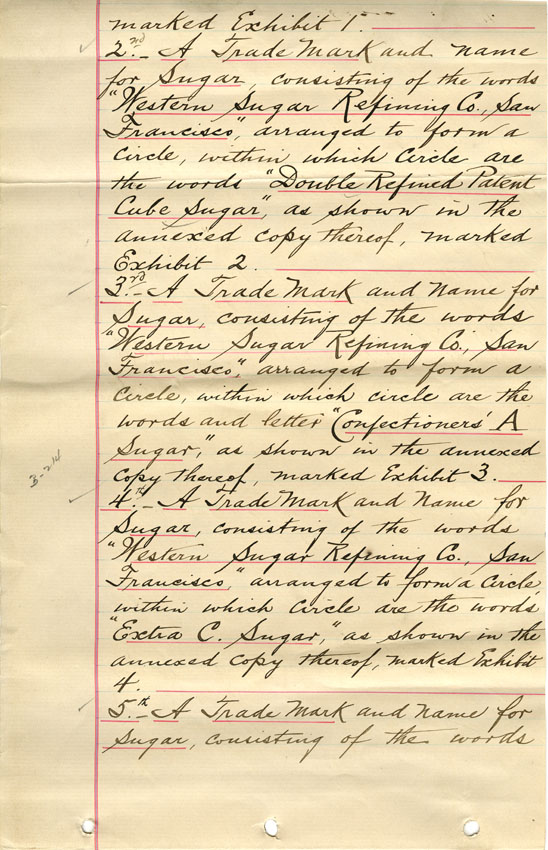 marked Exhibit 1.
2nd.- A Trade Mark and name
for Sugar, consisting of the words
"Western Sugar Refining Co., San
Francisco", arranged to form a
circle, within which circle are
the words "Double Refined Patent
Cube Sugar", as shown in the
annexed copy thereof, marked
Exhibit 2.
3rd.- A Trade Mark and name for
Sugar, consisting of the words
"Western Sugar Refining Co., San
Francisco", arranged to form a
circle, within which circle are the
words and letter "Confectioners' A
Sugar," as shown in the annexed
copy thereof, marked Exhibit 3.
4th.- A Trade Mark and Name for
Sugar, consisting of the words
"Western Sugar Refining Co., San
Francisco," arranged to form a circle,
within which circle are the words
"Extra C. Sugar," as shown in the
annexed copy thereof, marked Exhibit
4.
5th.- A Trade Mark and Name for
Sugar, consisting of the words